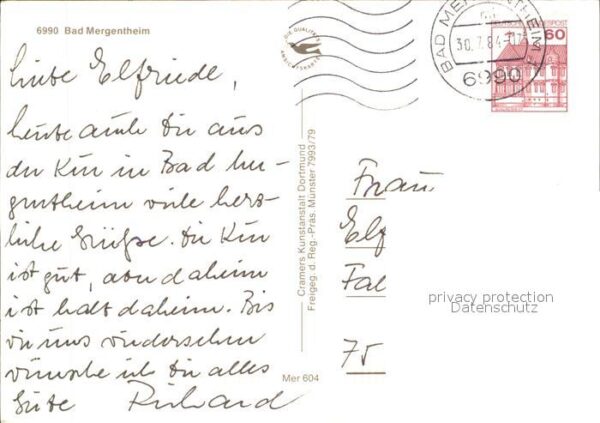 6990 Bad Mergentheim
DIE QUALITÄTS
ANSICHTSKARTE
BAD MERGENTHEIM
30.7.84-17
6990
DEUTSCHE BUNDESPOST
60
Liebe Elfriede,
heute auch Dir aus
der Kur in Bad Mer-
gentheim viele herz-
liche Grüße. Die Kur
ist gut, aber daheim
ist halt daheim. Bis
wir uns wiedersehen
wünsche ich Dir alles
Gute Richard
Cramers Kunstanstalt Dortmund
Freigeg. d. Reg.-Präs. Münster 7993/79
Mer 604
Frau
Elf
Fal
75
privacy protection
Datenschutz